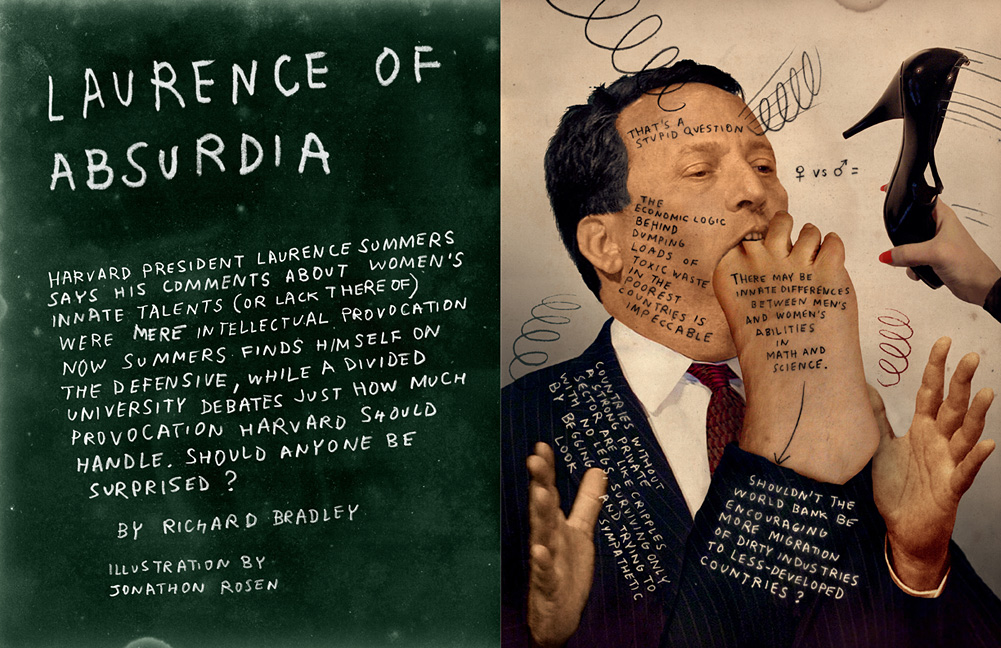 LAURENCE OF
ABSURDIA
HARVARD PRESIDENT LAURENCE SUMMERS
SAYS HIS COMMENTS ABOUT WOMEN'S
INNATE TALENTS (OR LACK THERE OF)
WERE MERE INTELLECTUAL PROVOCATION
NOW SUMMERS FINDS HIMSELF ON
THE DEFENSIVE, WHILE A DIVIDED
UNIVERSITY DEBATES JUST HOW MUCH
PROVOCATION HARVARD SHOULD
HANDLE. SHOULD ANYONE BE
SURPRISED ?
BY RICHARD BRADLEY
ILLUSTRATION BY
JONATHON ROSEN
THAT'S A
STUPID QUESTION
♀ VS ♂ =
THE
ECONOMIC LOGIC
BEHIND
DUMPING
LOADS OF
TOXIC WASTE
IN THE
POOREST
COUNTRIES IS
IMPECCABLE
THERE MAY BE
INNATE DIFFERENCES
BETWEEN MEN'S
AND WOMEN'S
ABILITIES
IN
MATH AND
SCIENCE.
COUNTRIES WITHOUT
A STRONG PRIVATE
SECTOR ARE LIKE CRIPPLES
WITH NO LEGS, SURVIVING ONLY
BY BEGGING AND TRYING TO
LOOK SYMPATHETIC
SHOULDN'T THE
WORLD BANK BE
ENCOURAGING
MORE MIGRATION
OF DIRTY INDUSTRIES
TO LESS-DEVELOPED
COUNTRIES ?